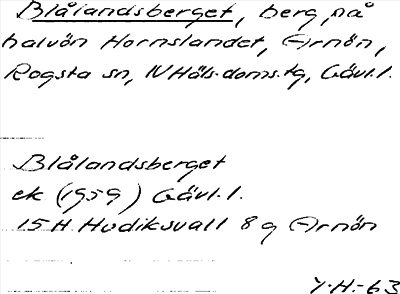 Blålandsberget, berg på
halvön Hornslandet, Arnön,
Rogsta sn, N Häls. doms.tg, Gävl.l.
Blålandsberget
ek (1959) Gävl.l.
15 H Hudiksvall 8 g Arnön
Y.H.-63